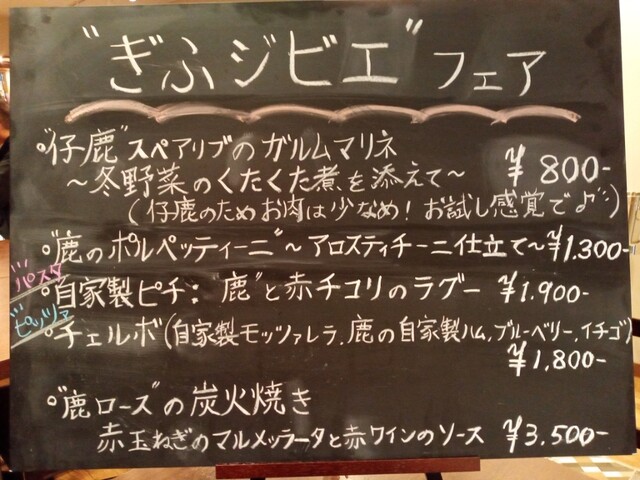 "ぎふジビエ"フェア
○"仔鹿"スペアリブのガルムマリネ
～冬野菜のくたくた煮を添えて～ ¥800-
(仔鹿のためお肉は少なめ！お試し感覚でよ)
○"鹿のポルペッティーニ"～アロスティチーニ仕立て～¥1,300-
パスタ
○自家製ピチ：鹿"と赤チコリのラグー ¥1,900-
ピッツァ
○チェルボ(自家製モッツァレラ、鹿の自家製ハム、ブルーベリー、イチゴ)
¥1,800-
○"鹿ロース"の炭火焼き
赤玉ねぎのマルメッラータと赤ワインのソース ¥3,500-